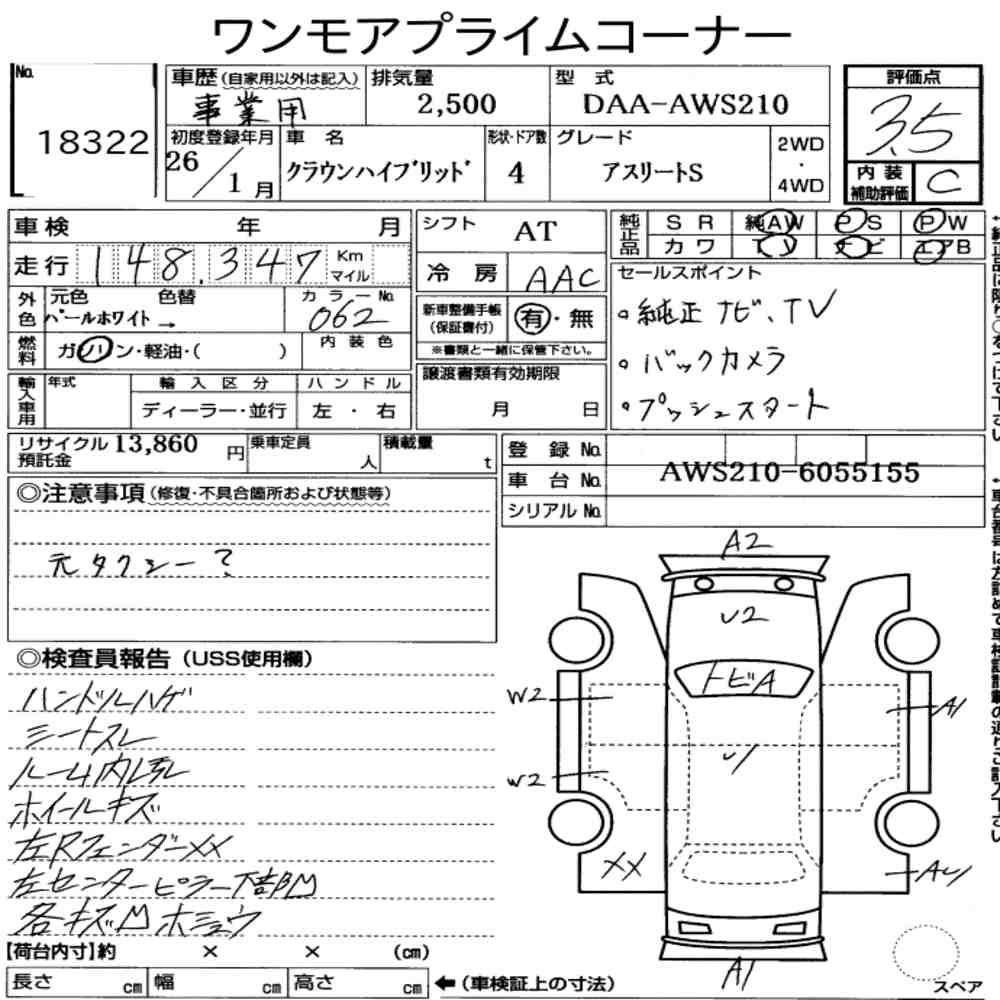 ワンモアプライムコーナー
No.
18322
車歴(自家用以外は記入)
事業用
排気量
2,500
型 式
DAA-AWS210
評価点
3.5
初度登録年月
26/1月
車 名
クラウンハイブリッド
形状・ドア数
4
グレード
アスリートS
2WD
・
4WD
内装
補助評価
C
車検 年 月
走行 148,347 Km
マイル
シフト AT
冷房 AAC
純正品
SR 純AW PS PW
カワ TV ナビ エアB
外色
元色 色替
パールホワイト→
カラーNo.
062
燃料
ガソリン・軽油・( )
内装色
新車整備手帳
(保証書付)
有・無
※書類と一緒に保管下さい。
セールスポイント
。純正ナビ、TV
。バックカメラ
・プッシュスタート
輸入車用
年式
輸入区分
ディーラー・並行
ハンドル
左・右
譲渡書類有効期限
月 日
リサイクル
預託金
13,860円
乗車定員
人
積載量
t
登録No.
車台No.
AWS210-6055155
シリアルNo.
◎注意事項(修復・不具合箇所および状態等)
元タクシー?
◎検査員報告(USS使用欄)
ハンドルハゲ
シートスレ
ルーム内
ホイールキズ
左Rフェンダーxx
左センターピラー下部凹
各キズ凹ホシュウ
A2
U2
トビA
W2
A1
U1
W2
XX
A1
【荷台内寸】約 × × (cm)
長さ cm 幅 cm 高さ cm
←(車検証上の寸法)
スペア